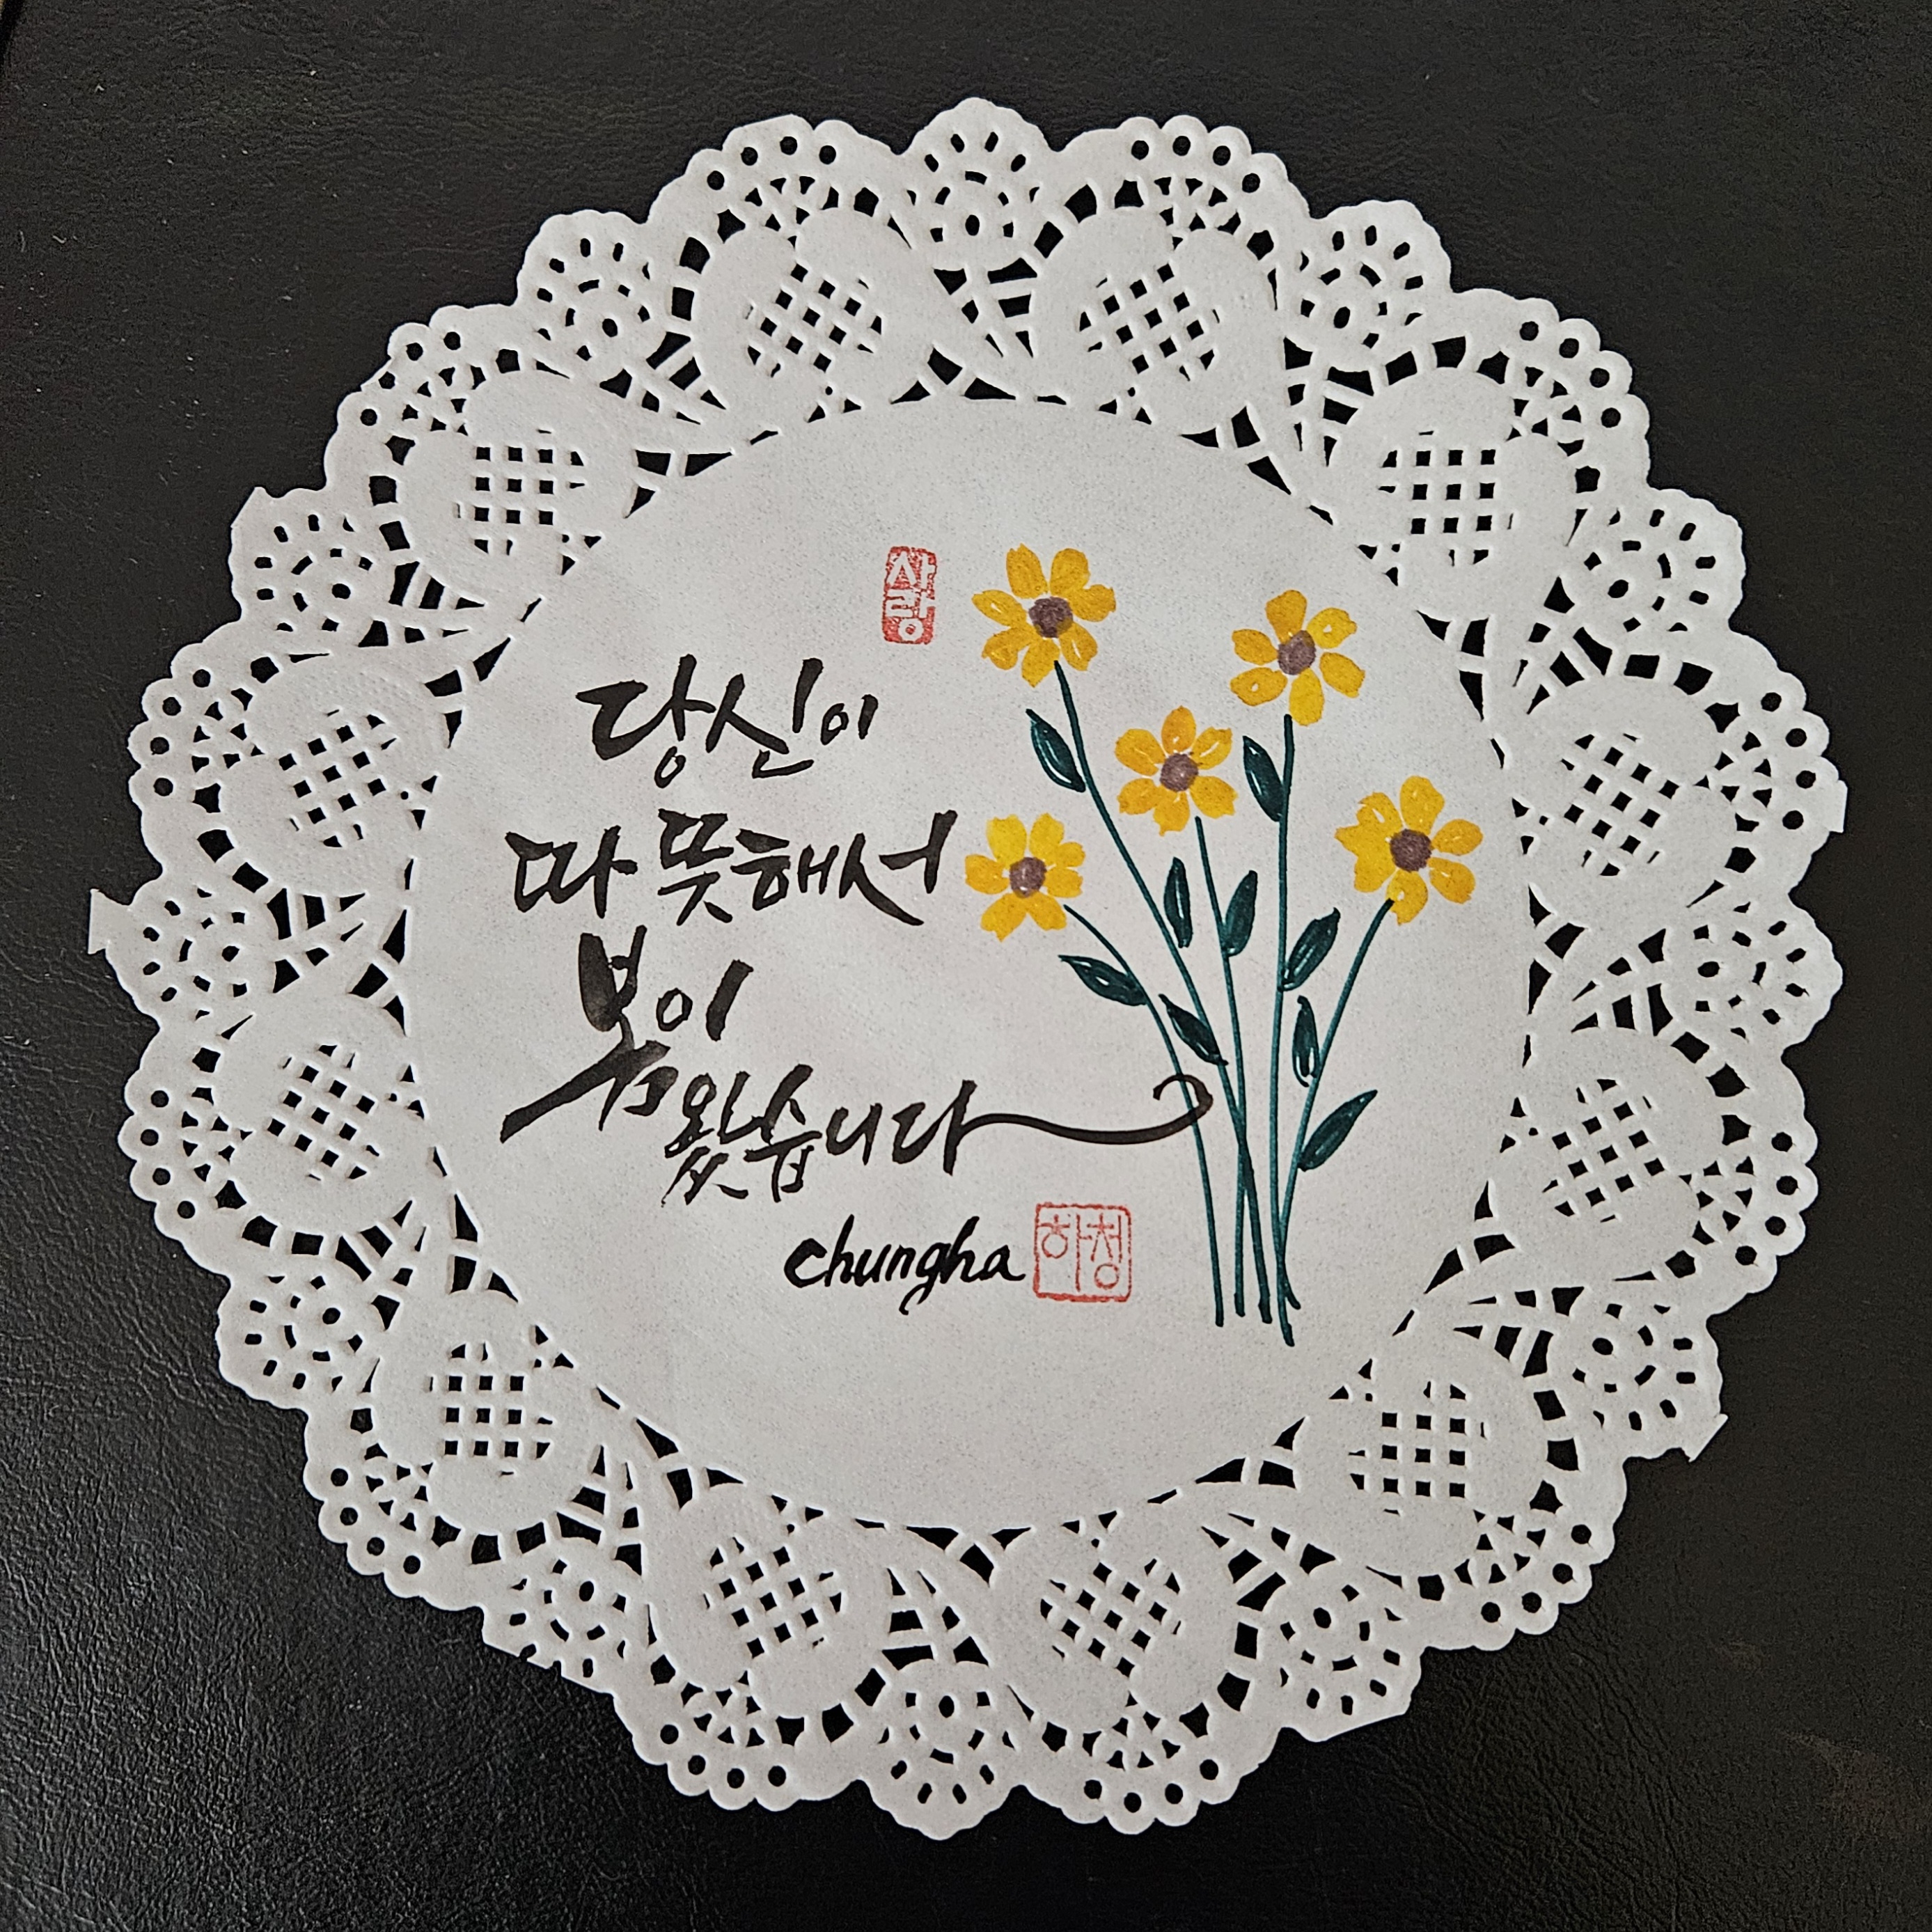 사랑
당신이
따뜻해서
봄이
왔습니다
chungha 하청